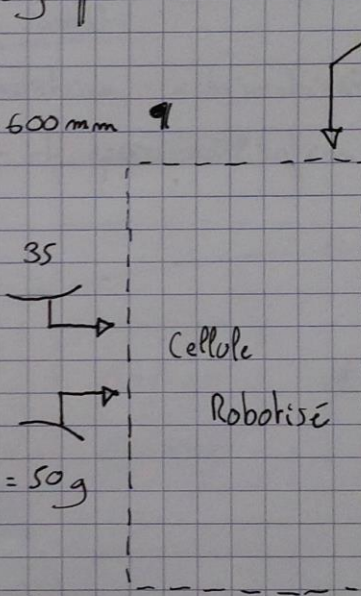 600 mm
35
Cellule
Robotisé
= 50g